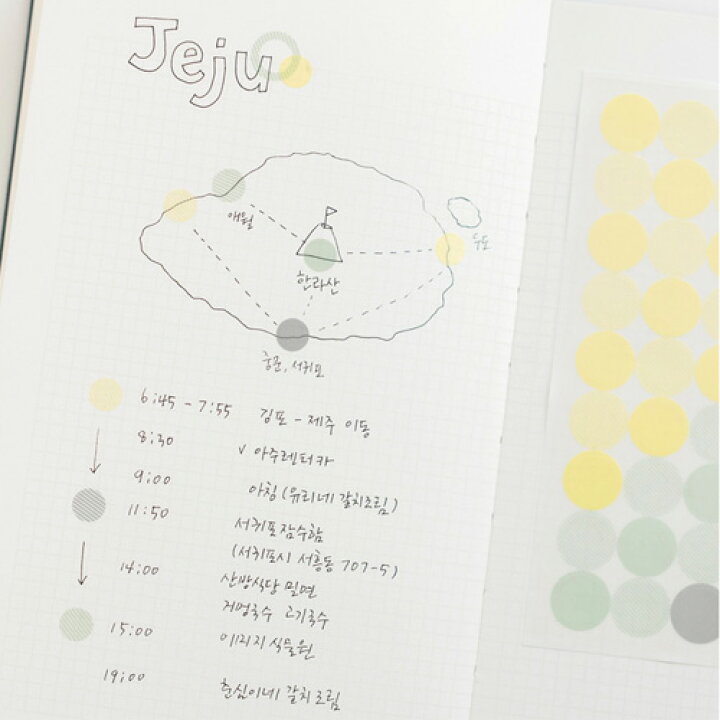 Jeju
애월
우도
한라산
중문, 서귀포
6:45 - 7:55 김포 - 제주 이동
8:30 v 아주렌터카
9:00 아침 (유리네 갈치조림)
11:50 서귀포잠수함
(서귀포시 서홍동 707-5)
14:00 산방식당 밀면
거멍국수 고기국수
15:00 식물원
19:00 춘심이네 갈치조림